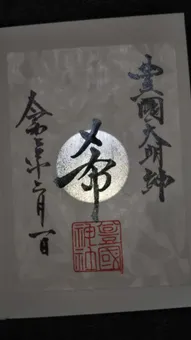 豊國大明神
希
令和年六月一日
豊國
神社